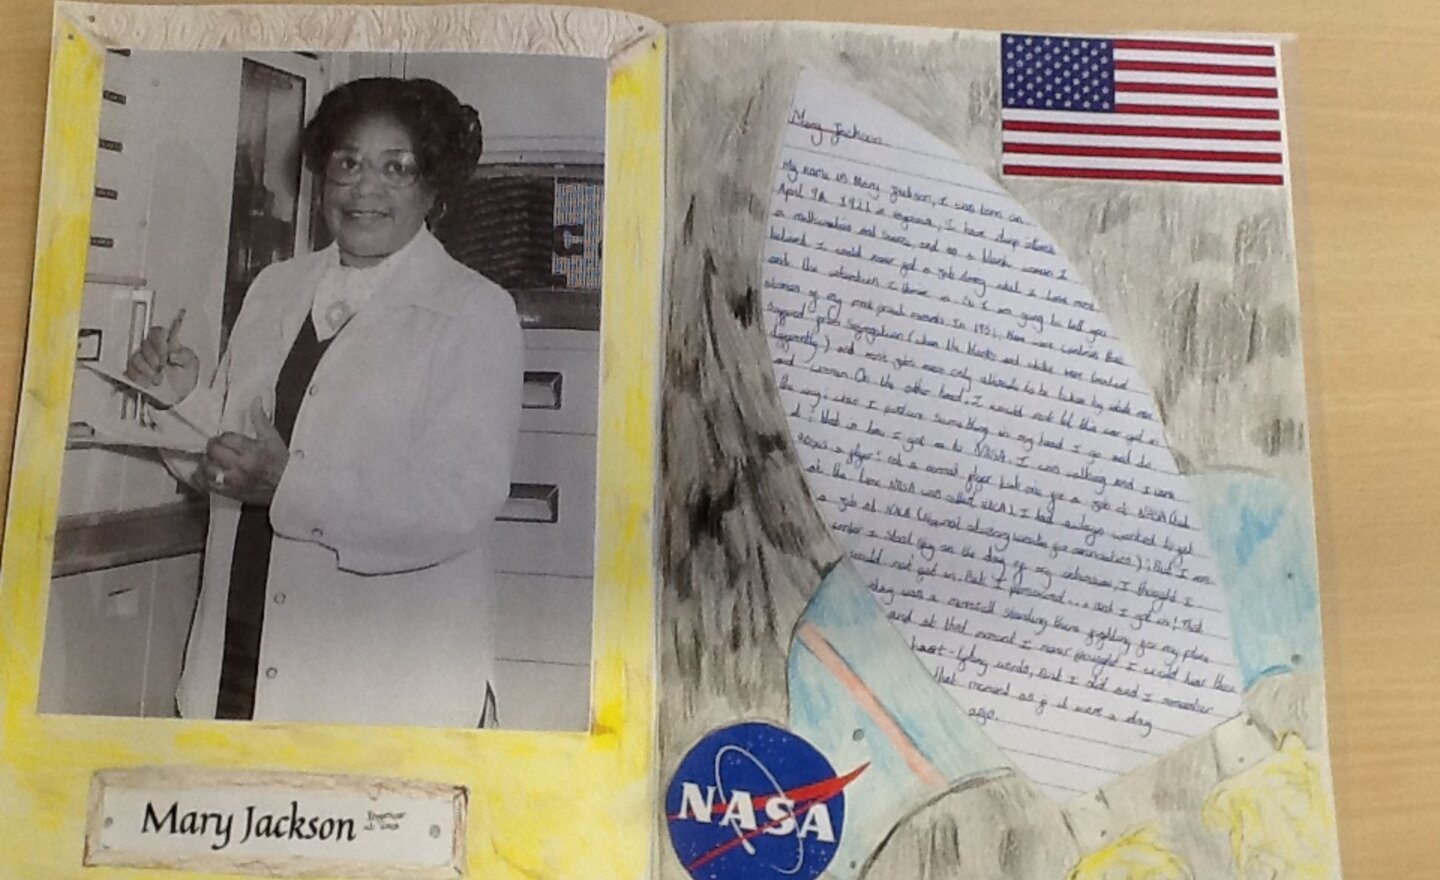 Mary Jackson
Mary Jackson
My name is Mary Jackson, I was born on
April 9th 1921 in I have deep interest
in mathematics and and as a black woman I
believed I would never get a job doing what I love most
and the I So I am going to tell you
of my most proud moments. In 1951, there were countries that
from segregation (when the blacks and whites were treated
differently) and most jobs were only allowed to be taken by white men
and women. On the other hand, I would not let this ever get in
the way; when I picture something in my head I go and do
it! that is how I got in to NASA. I was walking and I
a flyer: not a normal flyer but one for a job at NASA (but
at the time NASA was called NACA). I had always wanted to get
a job at NACA ( advisory ); But I was
under I on the day of my interview, I thought I
would not get in. But I persevered... and I got in! That
day was a standing there fighting for my place
and at that moment I never thought I would hear those
words, but I did and I remember
that moment as if it were a day
ago.
NASA